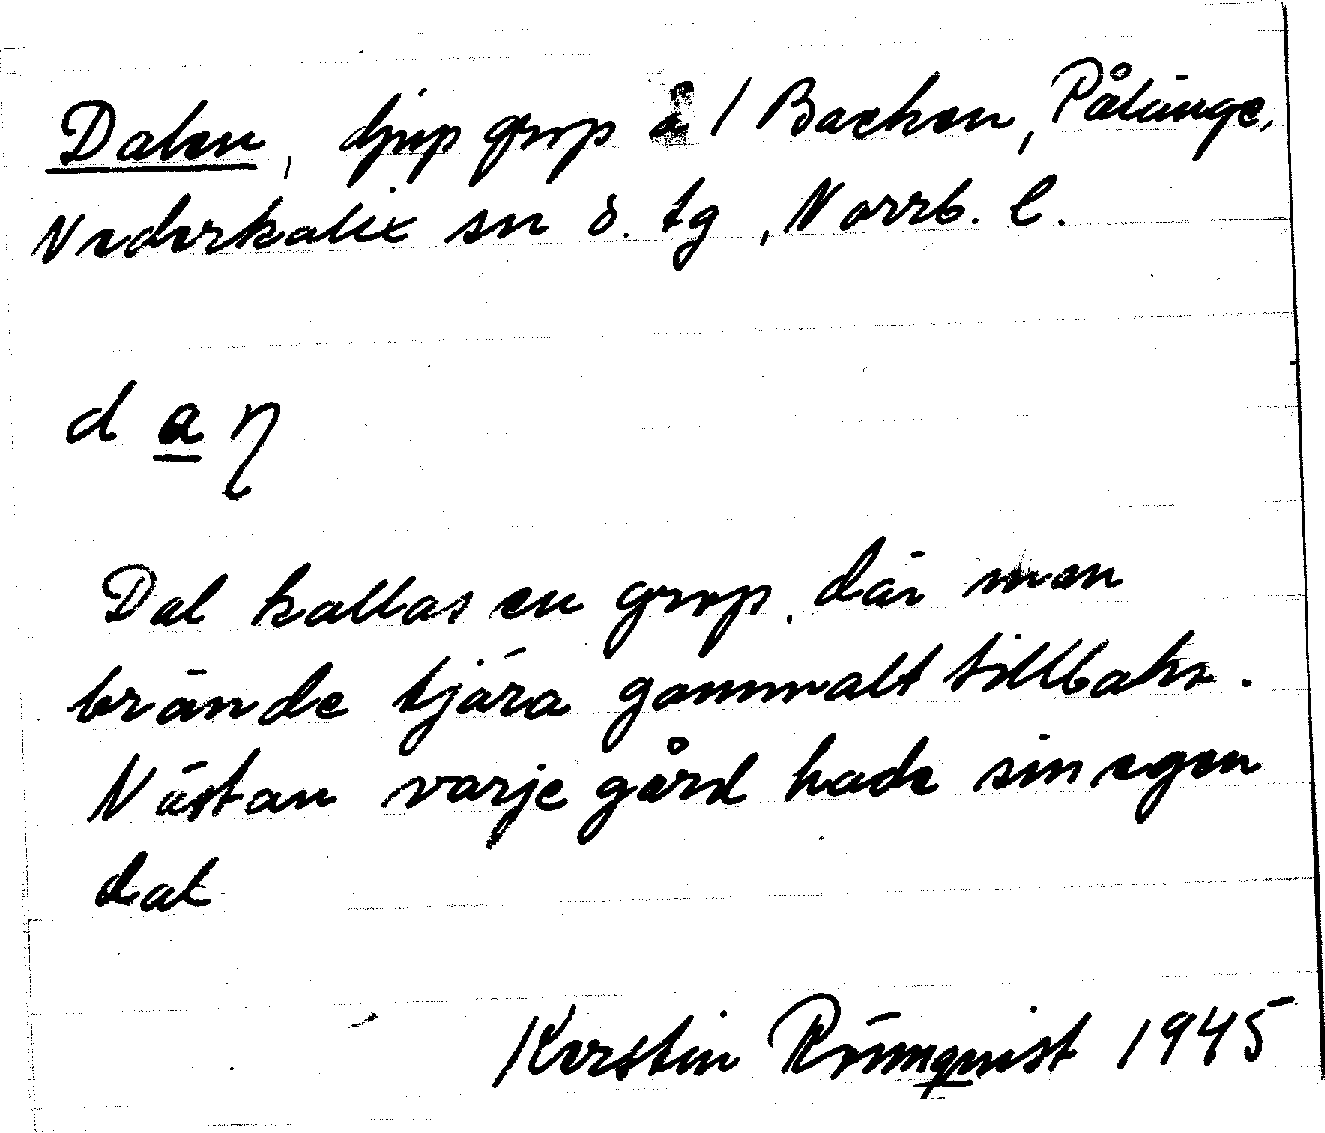 Dalen, djup grop å / Backen, Pålänge,
Nederkalix sn ö. tg, Norrb. l.
d a ŋ
Dal kallas en grop, där man
brände tjära gammalt tillbaka.
Nästan varje gård hade sin egen
dal
Kerstin Römquist 1945